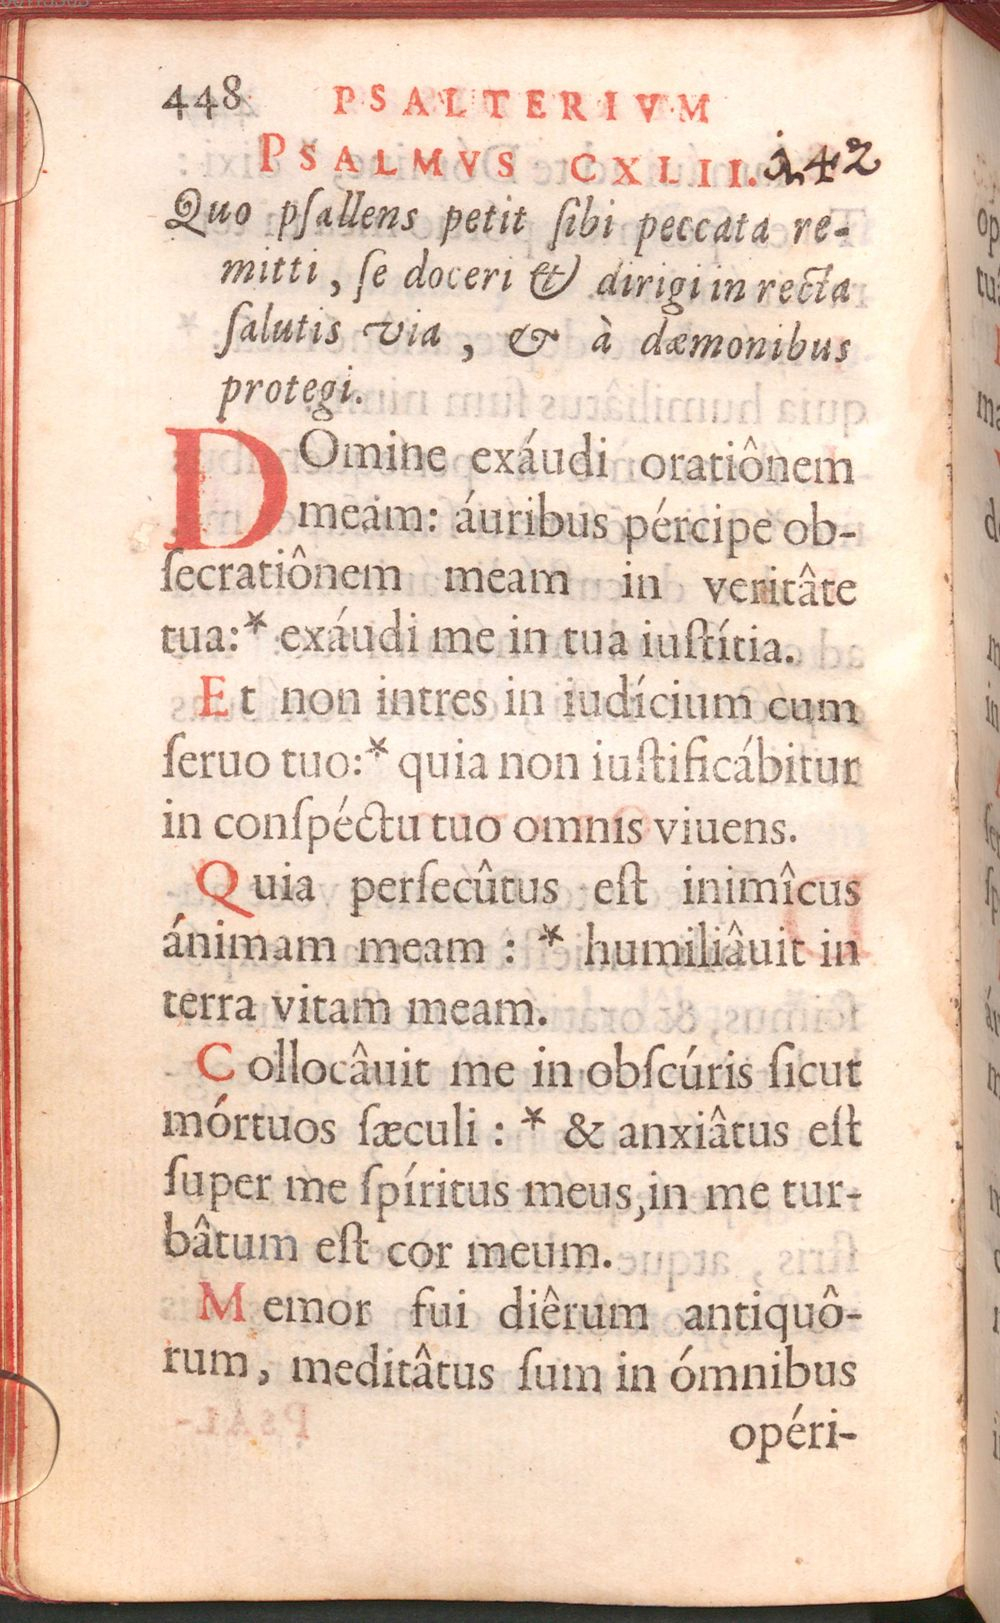 448 PSALTERIVM
PSALMVS CXLII. 142
Quo pſallens petit ſibi peccata re-
mitti, ſe doceri & dirigi in recta
ſalutis via, & à dæmonibus
protegi.
DOmine exáudi oratiônem
meam: áuribus pércipe ob-
ſecratiônem meam in veritâte
tua:* exáudi me in tua iuſtítia.
Et non intres in iudícium cum
ſeruo tuo:* quia non iuſtificábitur
in conſpéctu tuo omnis viuens.
Quia perſecûtus eſt inimîcus
ánimam meam : * humiliâuit in
terra vitam meam.
Collocâuit me in obſcúris ſicut
mórtuos ſæculi : * & anxiâtus eſt
ſuper me ſpíritus meus, in me tur-
bâtum eſt cor meum.
Memor fui diêrum antiquô-
rum, meditâtus ſum in ómnibus
opéri-